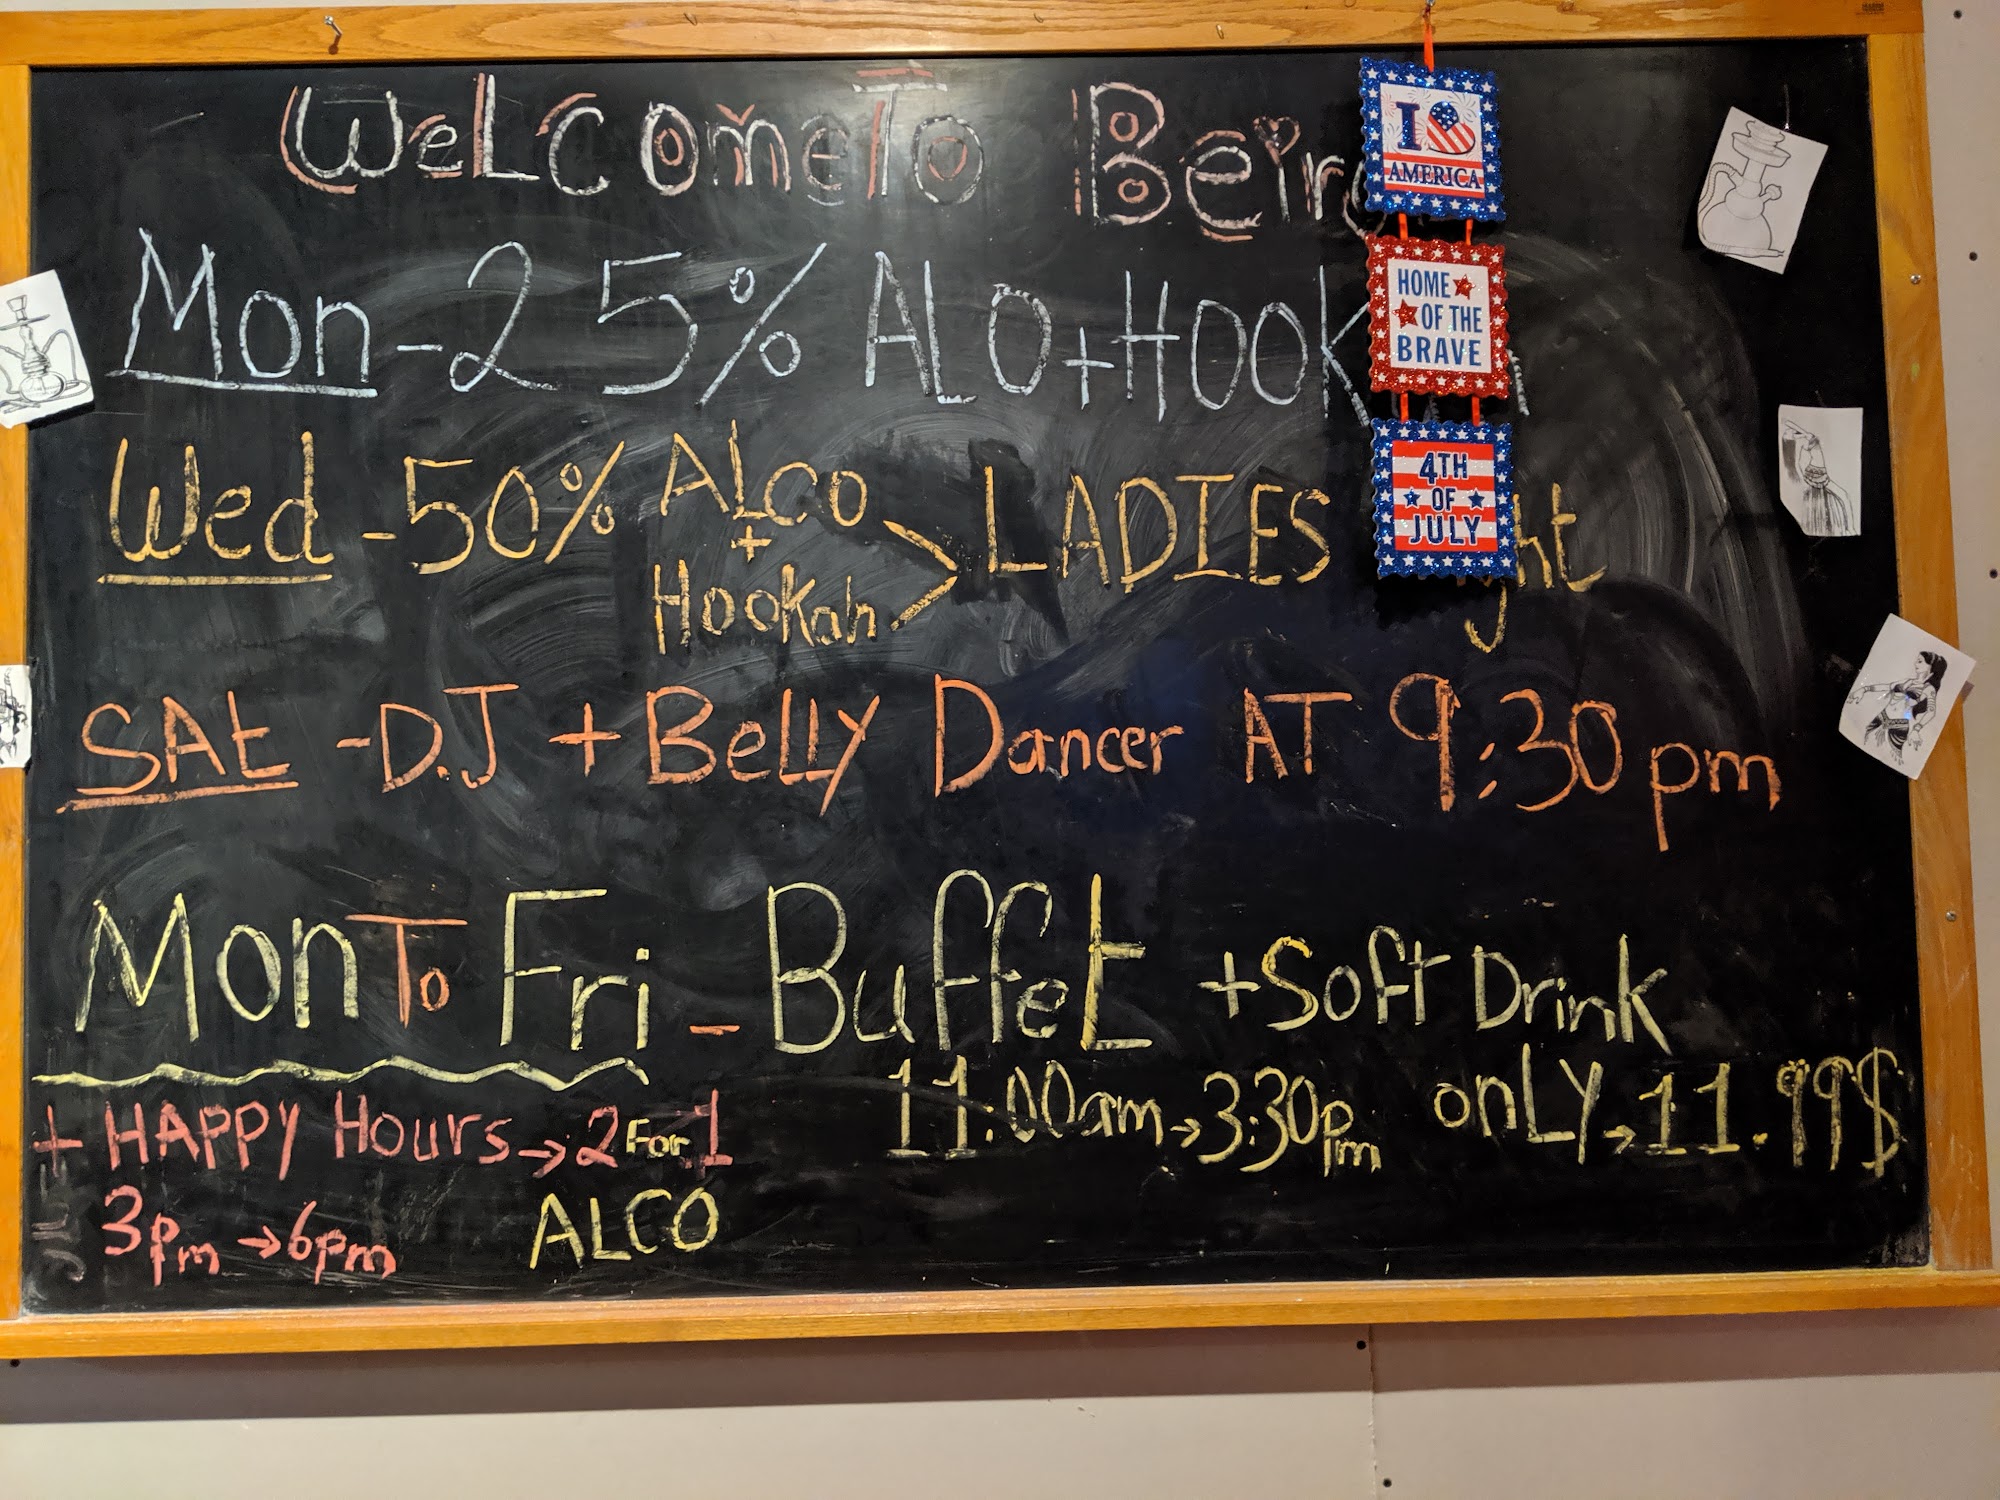 WeLcome To
Mon - 25% ALO + HOOK
Wed - 50% ALCO + Hookah > LADIES
SAt - D.J + BeLLY Dancer AT 9:30 pm
Mon To Fri - Buffet + Soft Drink
11:00am → 3:30pm onLY → 11.99$
+ HAPPY Hours → 2 For 1
3pm → 6pm ALCO
I
AMERICA
HOME
OF THE
BRAVE
4TH
OF
JULY